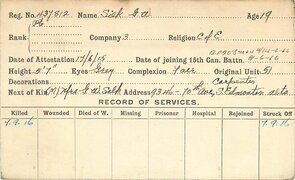 Reg. No. 437812 Name Sisk G A Age 19
Rank Pte. Company 3 Religion C of E
Date of Attestation 17/6/15 Date of joining 15th Can. Battn. 11-6-16
Height 5'7" Eyes Grey Complexion Fair Original Unit 51
Decorations Carpenter
Next of Kin (M) Mrs G A Sisk Address 9346 - 70th Ave, S. Edmonton Alta
RECORD OF SERVICES.
Killed Wounded Died of W. Missing Prisoner Hospital Rejoined Struck Off
7.9.16 7.9.16